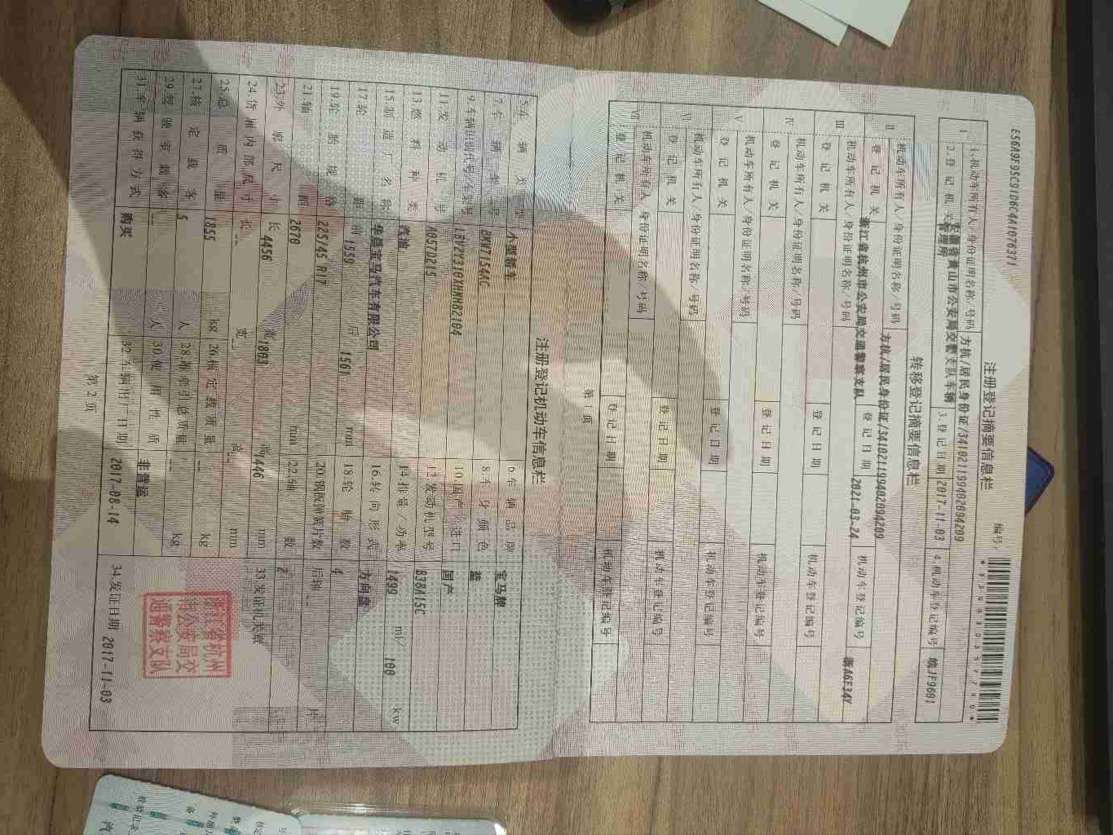 注册登记摘要信息栏
编号:
E56A9F95C91D6C4A1076371
1.机动车所有人/身份证明名称/号码 方杭/居民身份证/341021199402094209
2.登记机关 安徽省黄山市公安局交警支队车辆管理所 3.登记日期 2017-11-03 4.机动车登记编号 皖JF9601
转移登记摘要信息栏
Ⅱ 机动车所有人/身份证明名称/号码 方杭/居民身份证/341021199402094209
登记机关 浙江省杭州市公安局交通警察支队 登记日期 2021-03-24 机动车登记编号 浙A6F34Y
Ⅲ 机动车所有人/身份证明名称/号码
登记机关 登记日期 机动车登记编号
Ⅳ 机动车所有人/身份证明名称/号码
登记机关 登记日期 机动车登记编号
Ⅴ 机动车所有人/身份证明名称/号码
登记机关 登记日期 机动车登记编号
Ⅵ 机动车所有人/身份证明名称/号码
登记机关 登记日期 机动车登记编号
Ⅶ 机动车所有人/身份证明名称/号码
登记机关 登记日期 机动车登记编号
第1页
注册登记机动车信息栏
5.车辆类型 小型轿车 6.车辆品牌 宝马牌
7.车辆型号 BMW7154AC 8.车身颜色 蓝
9.车辆识别代号/车架号 10.国产/进口 国产
11.发动机号 A057D215 12.发动机型号 B38A15C
13.燃料种类 汽油 14.排量/功率 1499 ml/ 100 kw
15.制造厂名称 华晨宝马汽车有限公司 16.转向形式 方向盘
17.轮距 前 1559 后 1561 mm 18.轮胎数 4
19.轮胎规格 225/45 R17 20.钢板弹簧片数 后轴 -- 片
21.轴距 2670 mm 22.轴数 2
23.外廓尺寸 长 4456 宽 1803 高 1446 mm
24.货厢内部尺寸 长 -- 宽 -- 高 -- mm
25.总质量 1855 kg 26.核定载质量 -- kg
27.核定载客 5 人 28.准牵引总质量 -- kg
29.驾驶室载客 -- 人 30.使用性质 非营运
31.车辆获得方式 购买 32.车辆出厂日期 2017-08-14
33.发证机关章
浙江省杭州
市公安局交
通警察支队
34.发证日期 2017-11-03
第2页